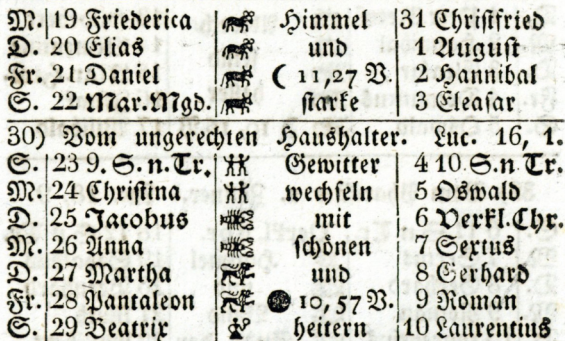 M. 19 Friederica Himmel 31 Christfried
D. 20 Elias und 1 August
Fr. 21 Daniel ☾ 11,27 V. 2 Hannibal
S. 22 Mar. Mgd. starke 3 Eleasar
30) Vom ungerechten Haushalter. Luc. 16, 1.
S. 23 9. S. n. Tr. Gewitter 4 10. S. n Tr.
M. 24 Christina wechseln 5 Oswald
D. 25 Jacobus mit 6 Verkl. Chr.
M. 26 Anna schönen 7 Sextus
D. 27 Martha und 8 Gerhard
Fr. 28 Pantaleon ● 10,57 V. 9 Roman
S. 29 Beatrix heitern 10 Laurentius